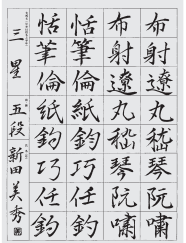 布射遼丸嵇琴阮嘯
布射遼丸嵇琴阮嘯
恬筆倫紙鈞巧任釣
恬筆倫紙鈞巧任釣
三星 五段 新田美秀